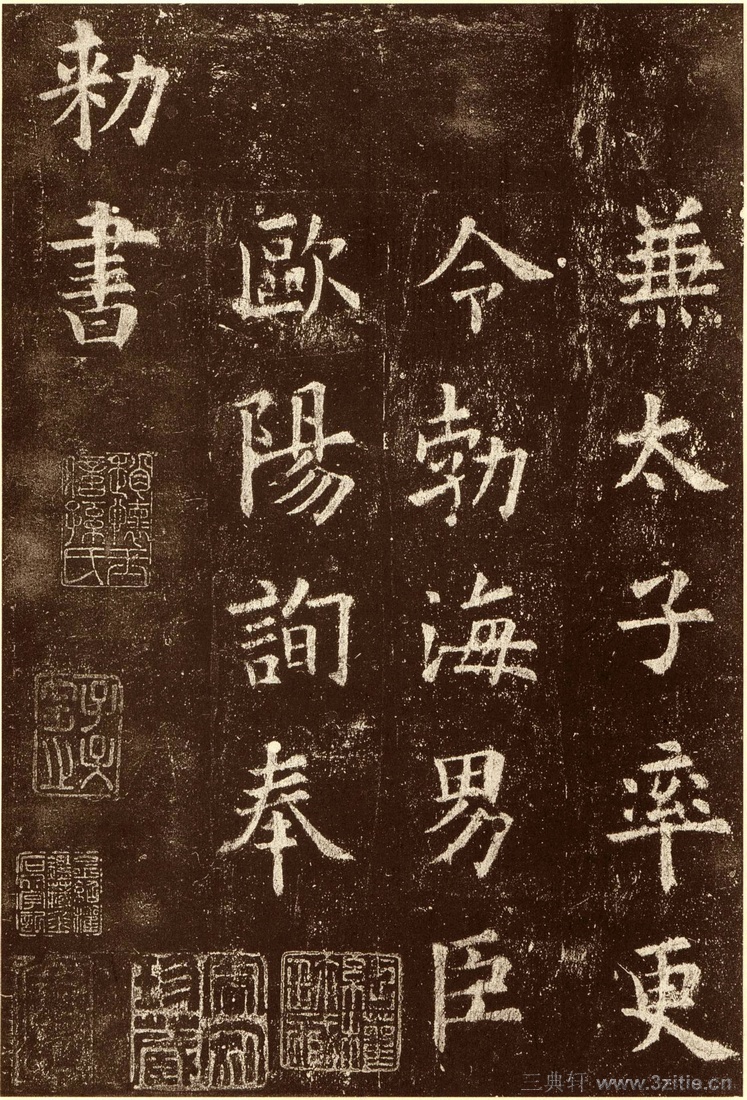 兼太子率更
令勃海男臣
歐陽詢奉
勑書
三典轩 www.3zitie.cn